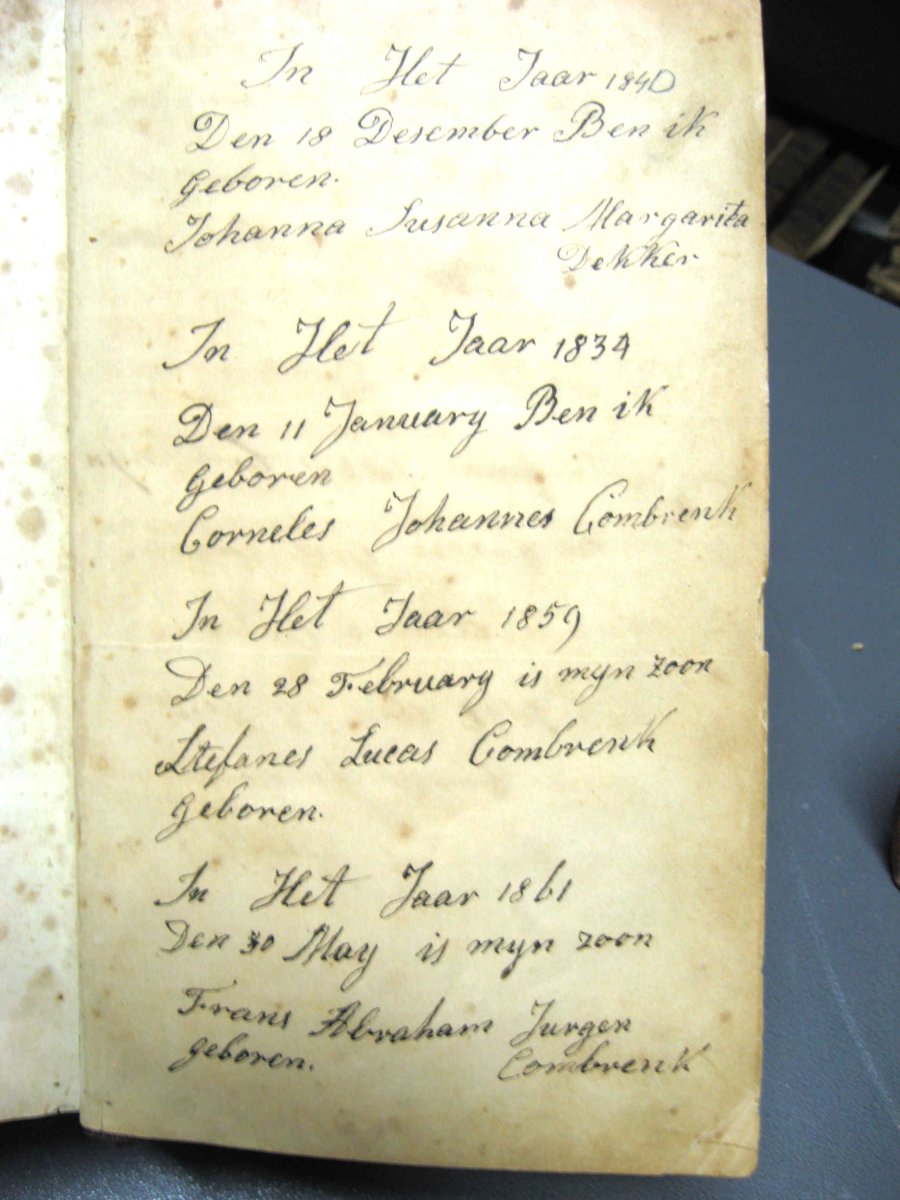 In Het Jaar 1840
Den 18 Desember Ben ik
geboren.
Johanna Susanna Margarita
Dekker
In Het Jaar 1834
Den 11 January Ben ik
geboren
Corneles Johannes Combrenk
In Het Jaar 1859
Den 28 February is myn zoon
Stefanes Lucas Combrenk
geboren.
In Het Jaar 1861
Den 30 May is myn zoon
Frans Abraham Jurgen
geboren. Combrenk